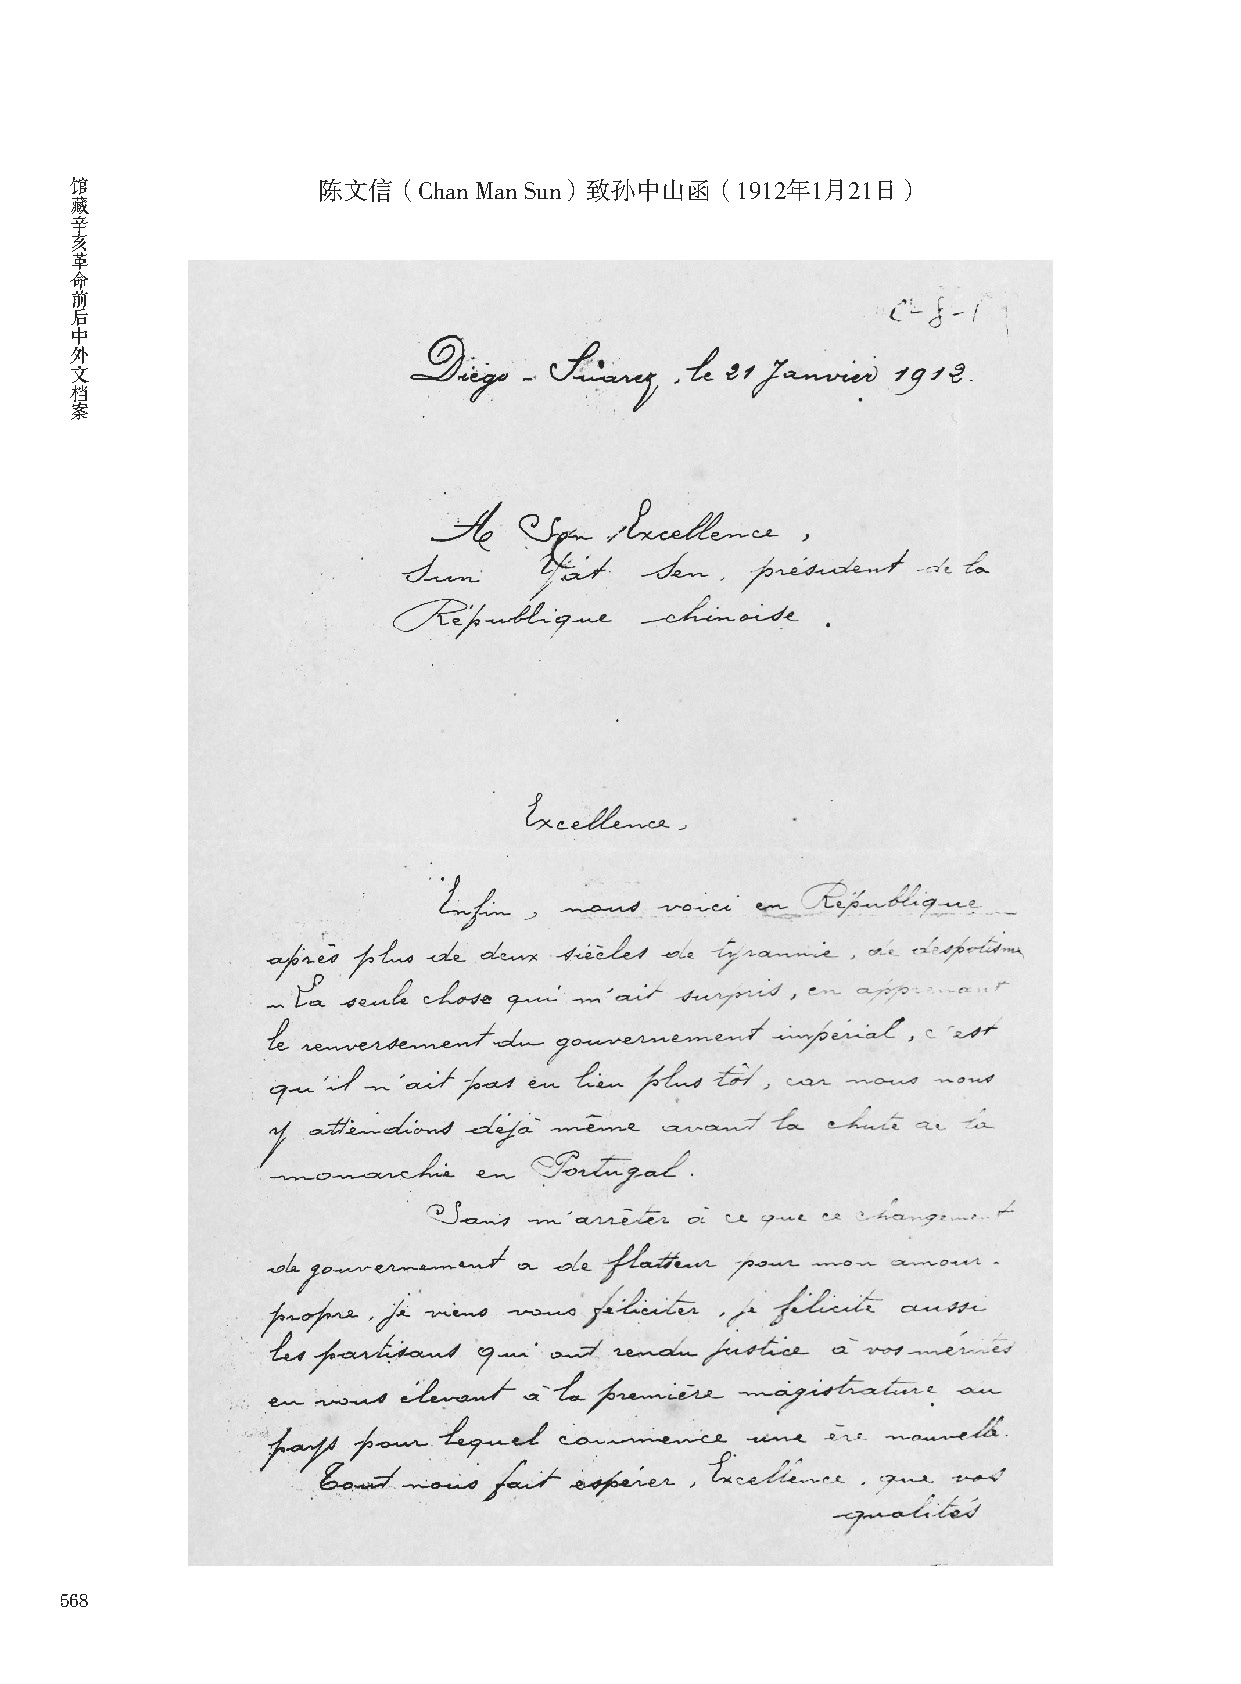 馆藏辛亥革命前后中外文档案
陈文信（Chan Man Sun）致孙中山函（1912年1月21日）
C-8-1
Diégo-Suarez, le 21 Janvier 1912.
A Son Excellence,
Sun Yat Sen, président de la
République chinoise.
Excellence,
Enfin, nous voici en République
après plus de deux siècles de tyrannie, de despotisme
- La seule chose qui m'ait surpris, en apprenant
le renversement du gouvernement impérial, c'est
qu'il n'ait pas eu lieu plus tôt, car nous nous
y attendions déjà même avant la chute de la
monarchie en Portugal.
Sans m'arrêter à ce que ce changement
de gouvernement a de flatteur pour mon amour-
propre, je viens vous féliciter, je félicite aussi
les partisans qui ont rendu justice à vos mérites
en vous élevant à la première magistrature au
pays pour lequel commence une ère nouvelle.
Tout nous fait espérer, Excellence, que vos
qualités
568